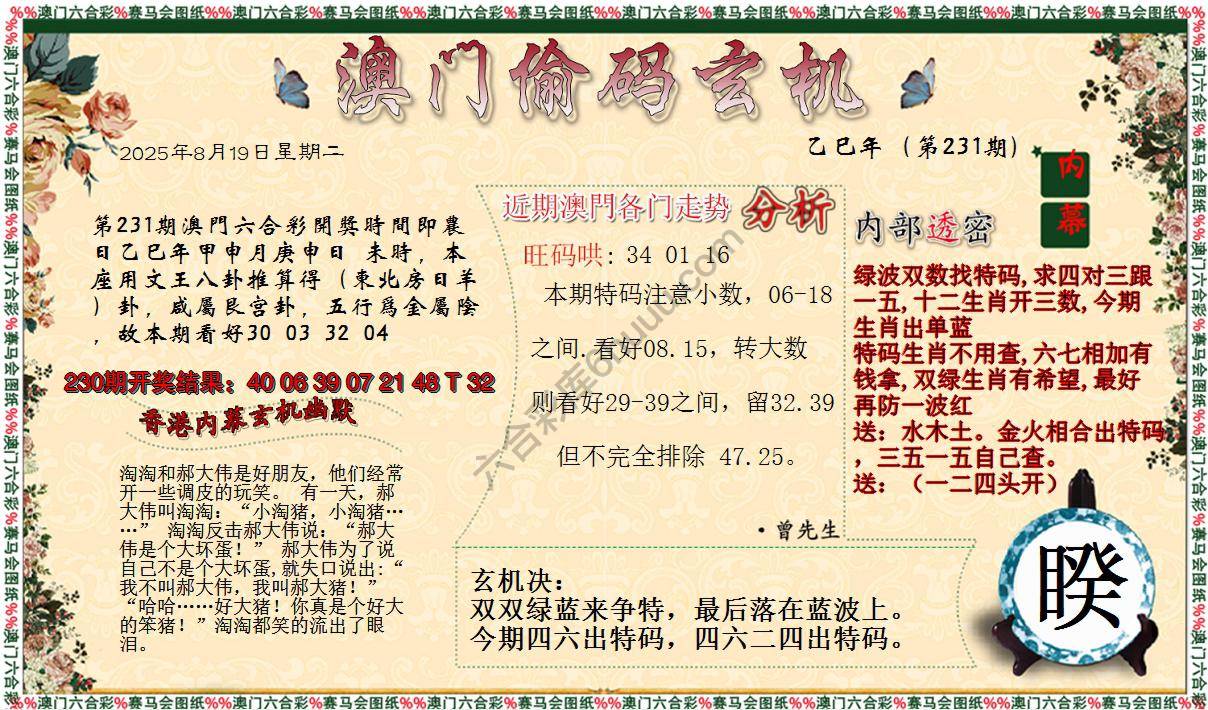 %%澳门六合彩%赛马会图纸%%澳门六合彩%赛马会图纸%%澳门六合彩%赛马会图纸%%澳门六合彩%赛马会图纸%%澳门六合彩%赛马会图纸%%澳门六合彩%赛马会图纸%%
澳门偷码玄机
2025年8月19日星期二
乙巳年（第231期）
内幕
第231期澳門六合彩開獎時間即農
日乙巳年甲申月庚申日 未時，本
座用文王八卦推算得（東北房日羊
）卦，咸屬艮宫卦，五行爲金屬陰
，故本期看好30 03 32 04
230期开奖结果：40 06 39 07 21 48 T 32
香港内幕玄机幽默
淘淘和郝大伟是好朋友，他们经常
开一些调皮的玩笑。 有一天，郝
大伟叫淘淘：“小淘猪，小淘猪…
…” 淘淘反击郝大伟说：“郝大
伟是个大坏蛋！” 郝大伟为了说
自己不是个大坏蛋,就失口说出:“
我不叫郝大伟，我叫郝大猪！”
“哈哈……好大猪！你真是个好大
的笨猪！”淘淘都笑的流出了眼
泪。
近期澳門各门走势 分析
旺码哄: 34 01 16
本期特码注意小数，06-18
之间.看好08.15，转大数
则看好29-39之间，留32.39
但不完全排除 47.25。
·曾先生
内部透密
绿波双数找特码,求四对三跟
一五,十二生肖开三数,今期
生肖出单蓝
特码生肖不用查,六七相加有
钱拿,双绿生肖有希望,最好
再防一波红
送：水木土。金火相合出特码
，三五一五自己查。
送：（一二四头开）
玄机决：
双双绿蓝来争特，最后落在蓝波上。
今期四六出特码，四六二四出特码。
睽
%%澳门六合彩%赛马会图纸%%澳门六合彩%赛马会图纸%%澳门六合彩%赛马会图纸%%澳门六合彩%赛马会图纸%%澳门六合彩%赛马会图纸%%澳门六合彩%赛马会图纸%%